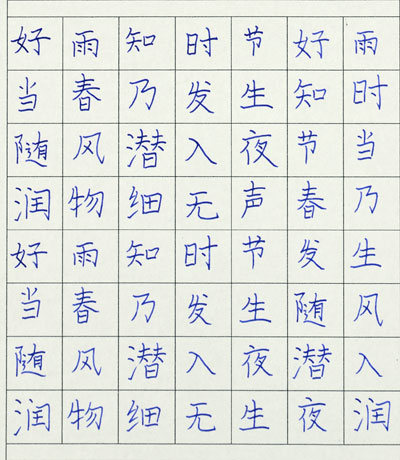 好雨知时节好雨
当春乃发生知时
随风潜入夜节当
润物细无声春乃
好雨知时节发生
当春乃发生随风
随风潜入夜潜入
润物细无生夜润